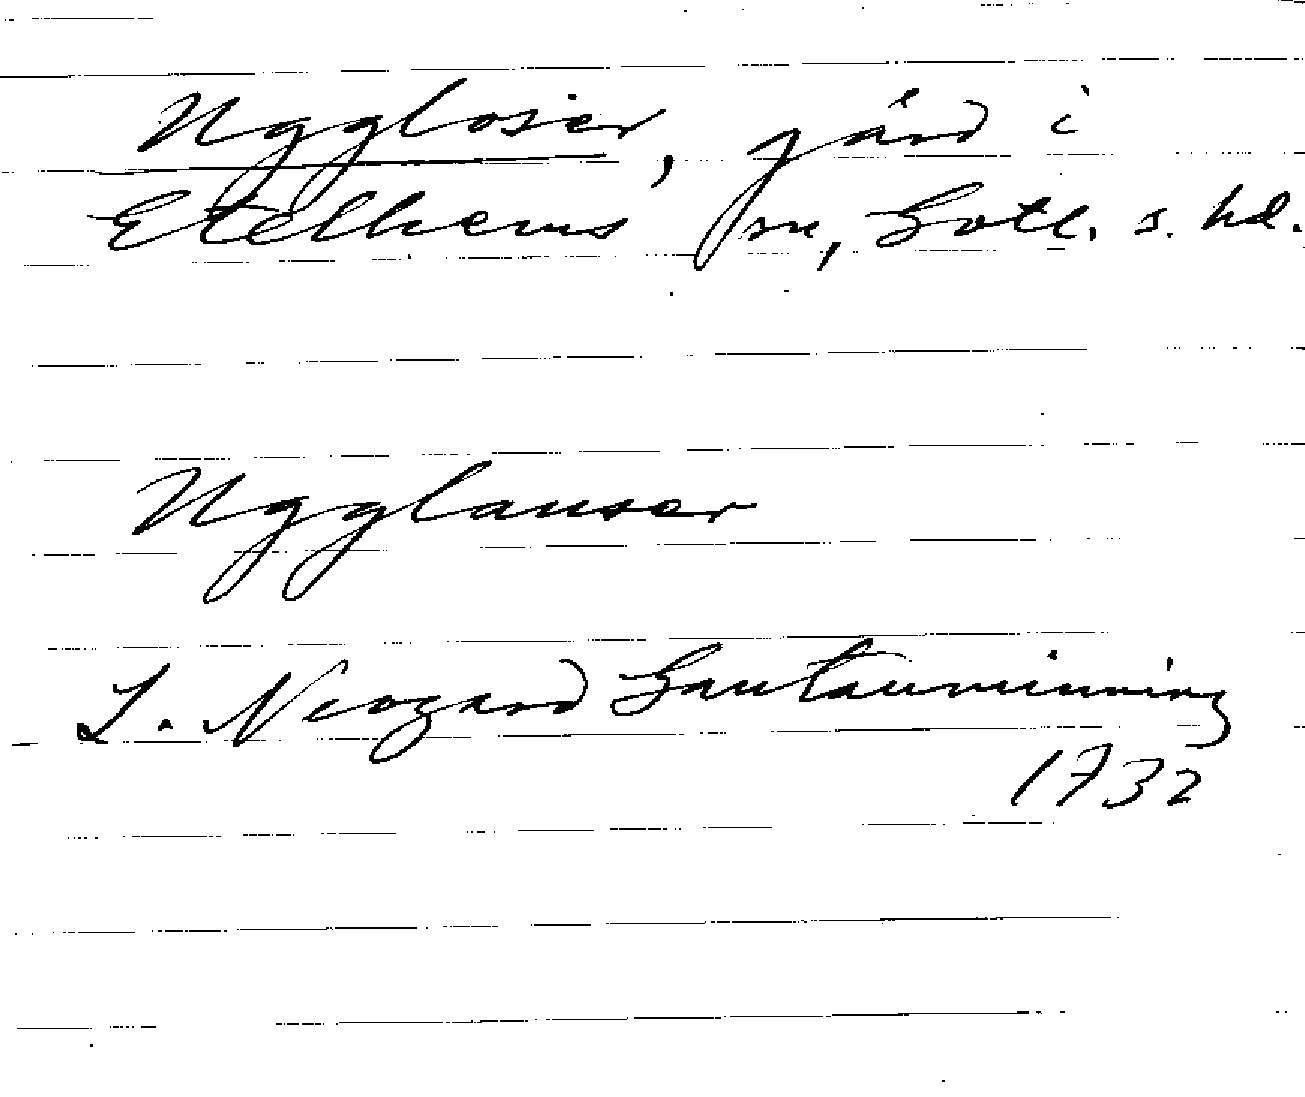 Uggloser, gård i
Etelhems sn, Gotl. s. hd.
Ugglauser
L. Neogard Gautauminning
1732